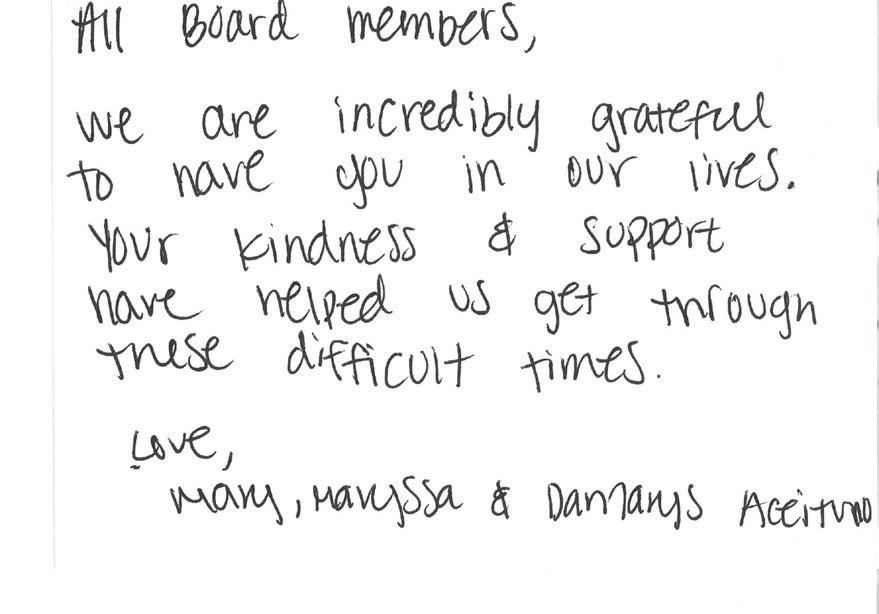 All Board members,
we are incredibly grateful
to have you in our lives.
Your kindness & support
have helped us get through
these difficult times.
Love,
Mary, Maryssa & Damarys Aceituno